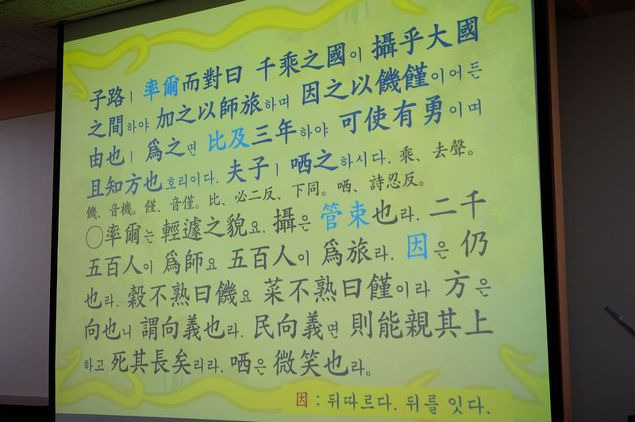 子路ㅣ 率爾而對曰 千乘之國이 攝乎大國
之間하야 加之以師旅하며 因之以饑饉이어든
由也ㅣ 爲之면 比及三年하야 可使有勇이며
且知方也호리이다. 夫子ㅣ 哂之하시다. 乘、去聲。
饑、音機。饉、音僅。比、必二反、下同。哂、詩忍反。
○率爾는 輕遽之貌요. 攝은 管束也라. 二千
五百人이 爲師요 五百人이 爲旅라. 因은 仍
也라. 穀不熟曰饑요 菜不熟曰饉이라 方은
向也니 謂向義也라. 民向義면 則能親其上
하고 死其長矣리라. 哂은 微笑也라.
因 : 뒤따르다. 뒤를 잇다.